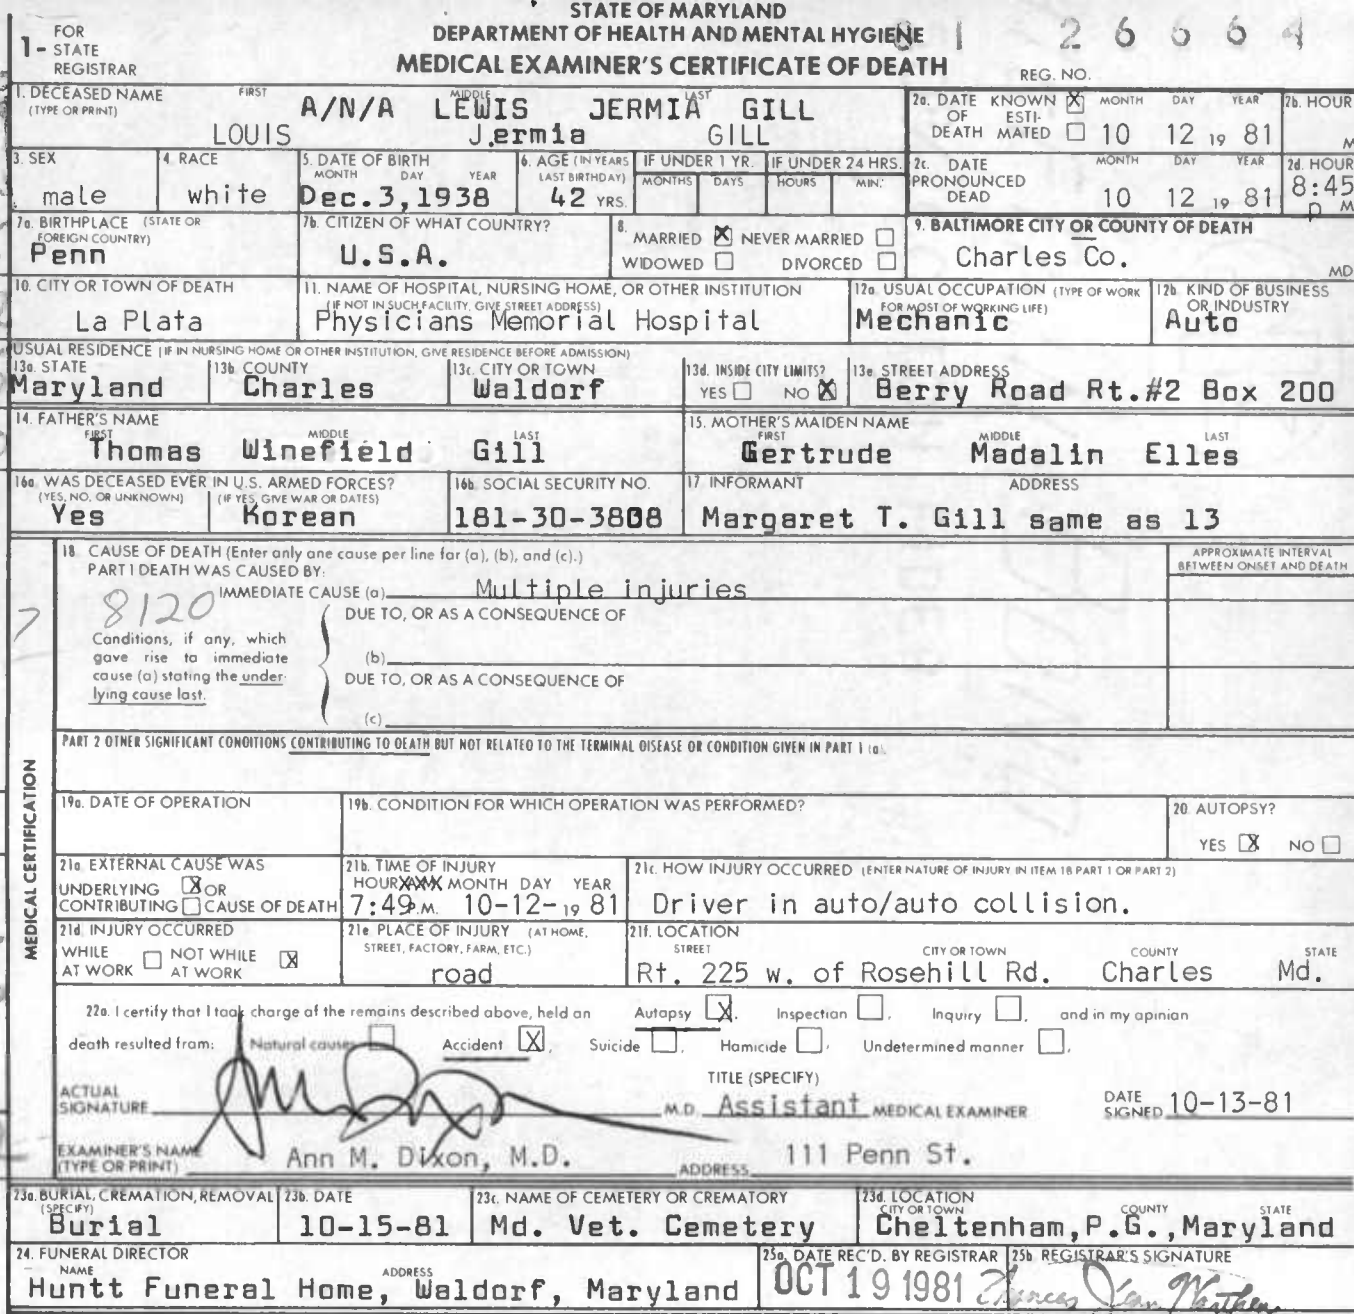 STATE OF MARYLAND
DEPARTMENT OF HEALTH AND MENTAL HYGIENE
MEDICAL EXAMINER'S CERTIFICATE OF DEATH
1- FOR STATE REGISTRAR
REG. NO.
1. DECEASED NAME (TYPE OR PRINT) FIRST MIDDLE LAST
A/N/A LEWIS JERMIA GILL
LOUIS Jermia GILL
2a. DATE OF DEATH KNOWN X ESTIMATED MONTH DAY YEAR 10 12 19 81
2b. HOUR M
3. SEX male
4. RACE white
5. DATE OF BIRTH MONTH DAY YEAR Dec.3,1938
6. AGE (IN YEARS LAST BIRTHDAY) 42 YRS.
IF UNDER 1 YR. MONTHS DAYS
IF UNDER 24 HRS. HOURS MIN.
2c. DATE PRONOUNCED DEAD MONTH DAY YEAR 10 12 19 81
2d. HOUR 8:45 p M
7a. BIRTHPLACE (STATE OR FOREIGN COUNTRY) Penn
7b. CITIZEN OF WHAT COUNTRY? U.S.A.
8. MARRIED X NEVER MARRIED
WIDOWED DIVORCED
9. BALTIMORE CITY OR COUNTY OF DEATH
Charles Co. MD
10. CITY OR TOWN OF DEATH La Plata
11. NAME OF HOSPITAL, NURSING HOME, OR OTHER INSTITUTION
(IF NOT IN SUCH FACILITY, GIVE STREET ADDRESS)
Physicians Memorial Hospital
12a. USUAL OCCUPATION (TYPE OF WORK FOR MOST OF WORKING LIFE) Mechanic
12b. KIND OF BUSINESS OR INDUSTRY Auto
USUAL RESIDENCE (IF IN NURSING HOME OR OTHER INSTITUTION, GIVE RESIDENCE BEFORE ADMISSION)
13a. STATE Maryland
13b. COUNTY Charles
13c. CITY OR TOWN Waldorf
13d. INSIDE CITY LIMITS? YES NO X
13e. STREET ADDRESS Berry Road Rt.#2 Box 200
14. FATHER'S NAME FIRST MIDDLE LAST
Thomas Winefield Gill
15. MOTHER'S MAIDEN NAME FIRST MIDDLE LAST
Gertrude Madalin Elles
16a. WAS DECEASED EVER IN U.S. ARMED FORCES?
(YES, NO, OR UNKNOWN) Yes
(IF YES, GIVE WAR OR DATES) Korean
16b. SOCIAL SECURITY NO. 181-30-3808
17 INFORMANT ADDRESS
Margaret T. Gill same as 13
18. CAUSE OF DEATH (Enter only one cause per line for (a), (b), and (c).)
APPROXIMATE INTERVAL BETWEEN ONSET AND DEATH
PART 1 DEATH WAS CAUSED BY:
IMMEDIATE CAUSE (a) Multiple injuries
8120
DUE TO, OR AS A CONSEQUENCE OF
Conditions, if any, which gave rise to immediate cause (a) stating the underlying cause last.
(b)
DUE TO, OR AS A CONSEQUENCE OF
(c)
PART 2 OTHER SIGNIFICANT CONDITIONS CONTRIBUTING TO DEATH BUT NOT RELATED TO THE TERMINAL DISEASE OR CONDITION GIVEN IN PART 1 (a).
MEDICAL CERTIFICATION
19a. DATE OF OPERATION
19b. CONDITION FOR WHICH OPERATION WAS PERFORMED?
20. AUTOPSY? YES X NO
21a. EXTERNAL CAUSE WAS
UNDERLYING X OR
CONTRIBUTING CAUSE OF DEATH
21b. TIME OF INJURY
HOUR MONTH DAY YEAR
7:49 P.M. 10-12-19 81
21c. HOW INJURY OCCURRED (ENTER NATURE OF INJURY IN ITEM 18 PART 1 OR PART 2)
Driver in auto/auto collision.
21d. INJURY OCCURRED
WHILE AT WORK NOT WHILE AT WORK X
21e. PLACE OF INJURY (AT HOME, STREET, FACTORY, FARM, ETC.)
road
21f. LOCATION STREET CITY OR TOWN COUNTY STATE
Rt. 225 w. of Rosehill Rd. Charles Md.
22a. I certify that I took charge of the remains described above, held an Autopsy X, Inspection, Inquiry, and in my opinion
death resulted from: Natural causes Accident X, Suicide, Homicide, Undetermined manner.
ACTUAL SIGNATURE M.D.
TITLE (SPECIFY)
Assistant MEDICAL EXAMINER
DATE SIGNED 10-13-81
EXAMINER'S NAME (TYPE OR PRINT) Ann M. Dixon, M.D.
ADDRESS 111 Penn St.
23a. BURIAL, CREMATION, REMOVAL (SPECIFY) Burial
23b. DATE 10-15-81
23c. NAME OF CEMETERY OR CREMATORY Md. Vet. Cemetery
23d. LOCATION CITY OR TOWN COUNTY STATE
Cheltenham, P.G., Maryland
24. FUNERAL DIRECTOR
NAME ADDRESS
Huntt Funeral Home, Waldorf, Maryland
25a. DATE REC'D. BY REGISTRAR OCT 19 1981
25b. REGISTRAR'S SIGNATURE